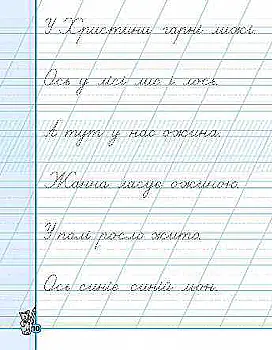 У Христини гарні лижі.
Ось у лісі лис і лось.
А тут у нас ожина.
Жанна ласує ожиною.
У полі росло жито.
Ось синіє синій льон.